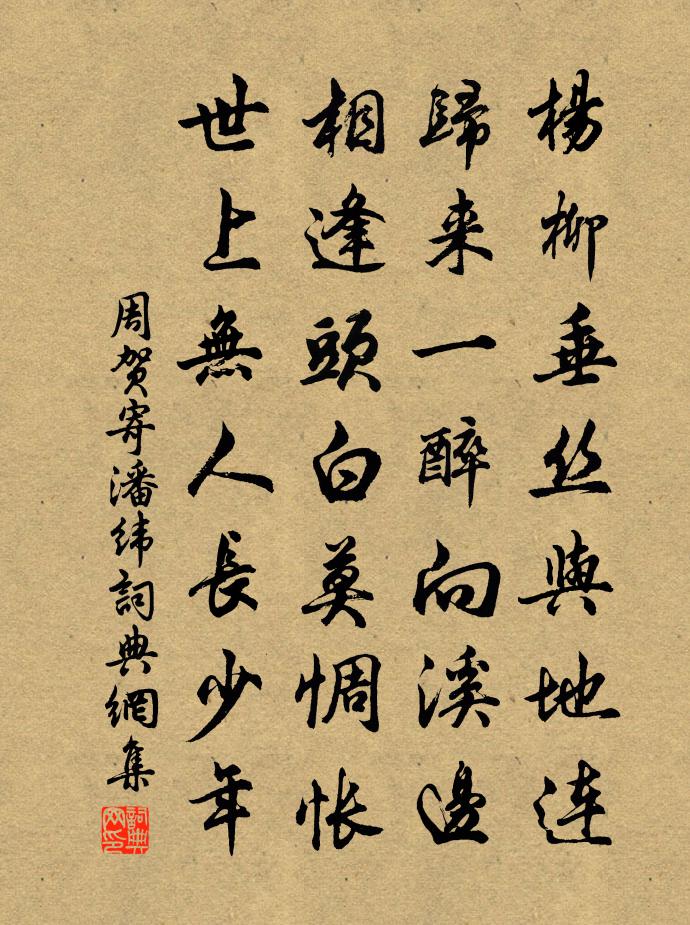 楊柳垂丝與地連
歸来一醉向溪邊
相逢頭白莫惆悵
世上無人長少年
周贺寄潘纬詞典網集
詞典网印